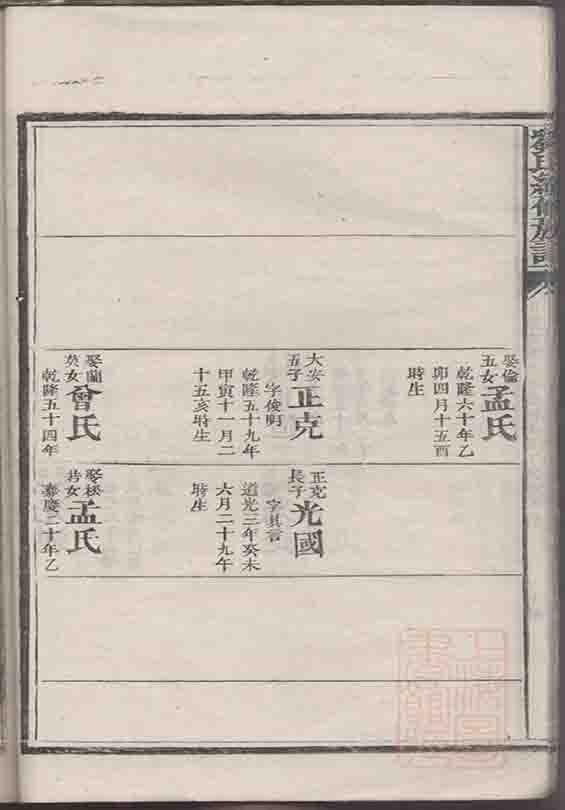 氏續修族譜
娶倫
五女
孟氏
乾隆六十年乙
卯四月十五酉
時生
大安
五子
正克
字俊明
乾隆五十九年
甲寅十一月二
十五亥時生
娶蘭
英女
曾氏
乾隆五十四年
正克
長子
光國
字其言
道光三年癸未
六月二十九午
時生
娶松
女
孟氏
嘉慶二十年乙